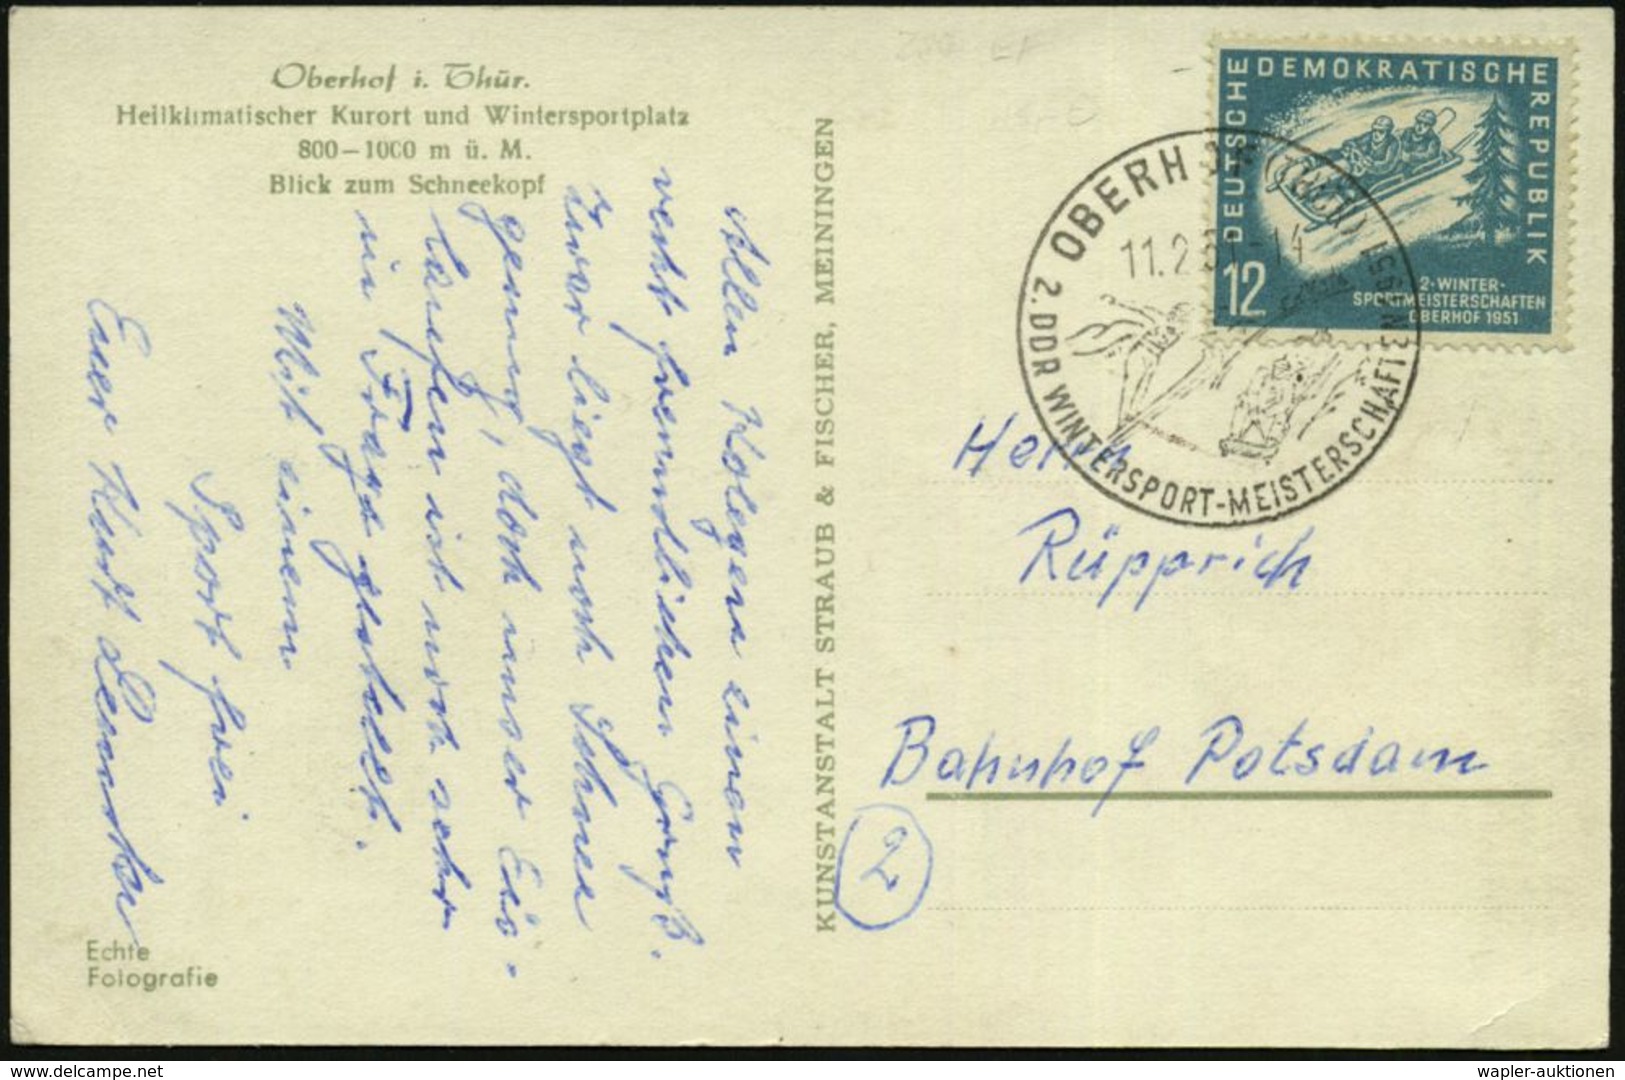 Oberhof i. Thür.
Heilklimatischer Kurort und Wintersportplatz
800–1000 m ü. M.
Blick zum Schneekopf
Allen Kolegen einen
recht freundlichen Gruß.
Zwar liegt noch Schnee
genug, doch unser Eis-
laufen ist noch sehr
in Frage gestellt.
Mit einem
Sport frei
Euer Kurt
Echte
Fotografie
KUNSTANSTALT STRAUB & FISCHER, MEININGEN
DEUTSCHE DEMOKRATISCHE REPUBLIK
12
2. WINTER-
SPORTMEISTERSCHAFTEN
OBERHOF 1951
OBERHOF (THÜR)
11.2.51-14
2. DDR WINTERSPORT-MEISTERSCHAFTEN 1951
Herrn
Rüpprich
Bahnhof Potsdam
2
wapler-auktionen.de
wapler-auktionen